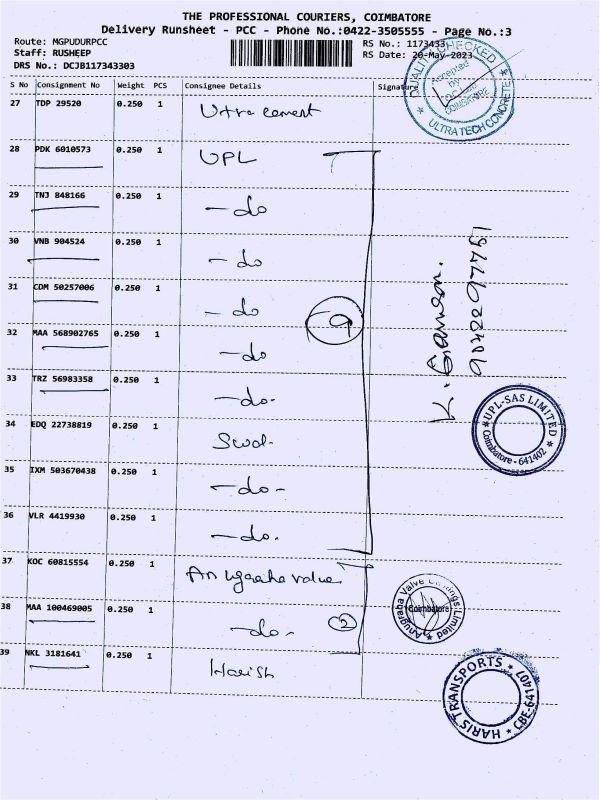 THE PROFESSIONAL COURIERS, COIMBATORE
Delivery Runsheet - PCC - Phone No.:0422-3505555 - Page No.:3
Route: MGPUDURPCC
RS No.: 1173433
Staff: RUSHEEP
RS Date: 20-May-2023
DRS No.: DCJB117343303
S No Consignment No Weight PCS Consignee Details Signature
QUALITY CHECKED
Accepted
by
COIMBATORE
ULTRATECH CONCRETE
27 TDP 29520 0.250 1 Ultra cement
28 PDK 6010573 0.250 1 UPL
29 TNJ 848166 0.250 1 -do
30 VNB 904524 0.250 1 -do
31 CDM 50257006 0.250 1 -do
9
32 MAA 568902765 0.250 1 -do
33 TRZ 56983358 0.250 1 -do-
UPL-SAS LIMITED
Coimbatore - 641402
34 EDQ 22738819 0.250 1 Swal-
35 IXM 503670438 0.250 1 -do-
36 VLR 4419930 0.250 1 -do.
37 KOC 60815554 0.250 1 Anugraha valve
38 MAA 100469005 0.250 1 -do-
2
Anugraha Valve Castings Limited
Coimbatore
39 NKL 3181641 0.250 1 Harish
HARIS TRANSPORTS
CBE-641407